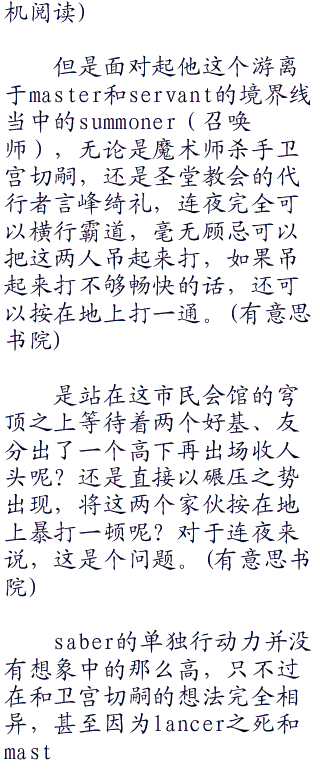 机阅读)
但是面对起他这个游离
于master和servant的境界线
当中的summoner（召唤
师），无论是魔术师杀手卫
宫切嗣，还是圣堂教会的代
行者言峰绮礼，连夜完全可
以横行霸道，毫无顾忌可以
把这两人吊起来打，如果吊
起来打不够畅快的话，还可
以按在地上打一通。(有意思
书院)
是站在这市民会馆的穹
顶之上等待着两个好基、友
分出了一个高下再出场收人
头呢？还是直接以碾压之势
出现，将这两个家伙按在地
上暴打一顿呢？对于连夜来
说，这是个问题。(有意思书
院)
saber的单独行动力并没
有想象中的那么高，只不过
在和卫宫切嗣的想法完全相
异，甚至因为lancer之死和
mast